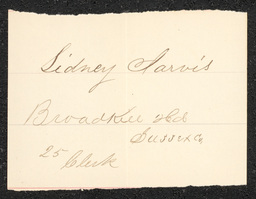 Sidney Jarvis
Broadkill Hd
Sussex Co
25
Clerk